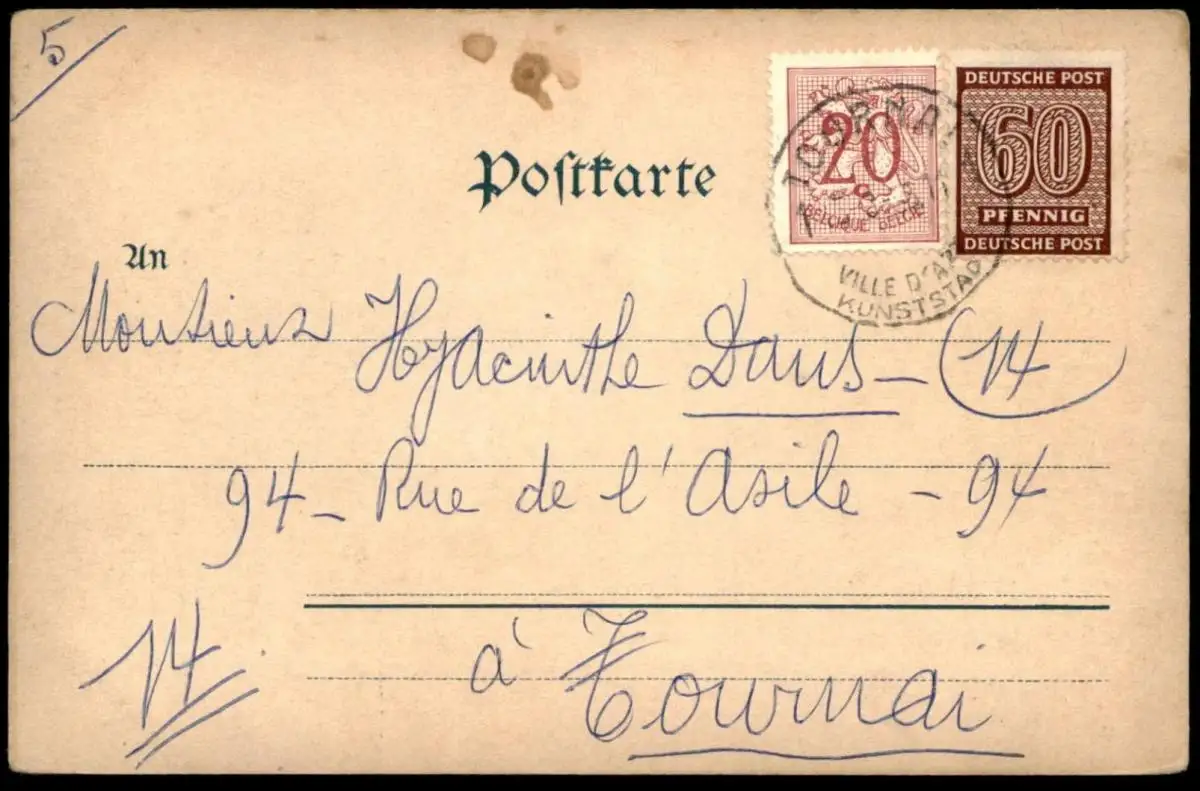 5
DEUTSCHE POST
60
PFENNIG
DEUTSCHE POST
20
BELGIQUE BELGIË
TOURNAI
VILLE D'A
KUNSTSTAD
Postkarte
An
Monsieur Hyacinthe Daus - 14
94 - Rue de l'Asile - 94
14
à Tournai